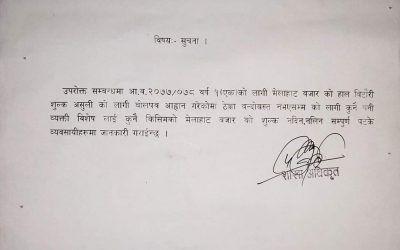 विषयः- सुचना ।
उपरोक्त सम्बन्धमा आ.व.२०७७/०७८ बर्ष १(एक)को लागी मेलाहाट बजार को हाल बिटौरी
शुल्क असुली को लागी बोलपत्र आह्वान गरेकोमा ठेक्का बन्दोबस्त नभएसम्म को लागी कुनै पनी
व्यक्ती बिशेष लाई कुनै किसिमको मेलाहाट बजार को शुल्क नदिन,नलिन सम्पुर्ण पटके
ब्यबसायीहरूमा जानकारी गराईन्छ ।
शाखा अधिकृत